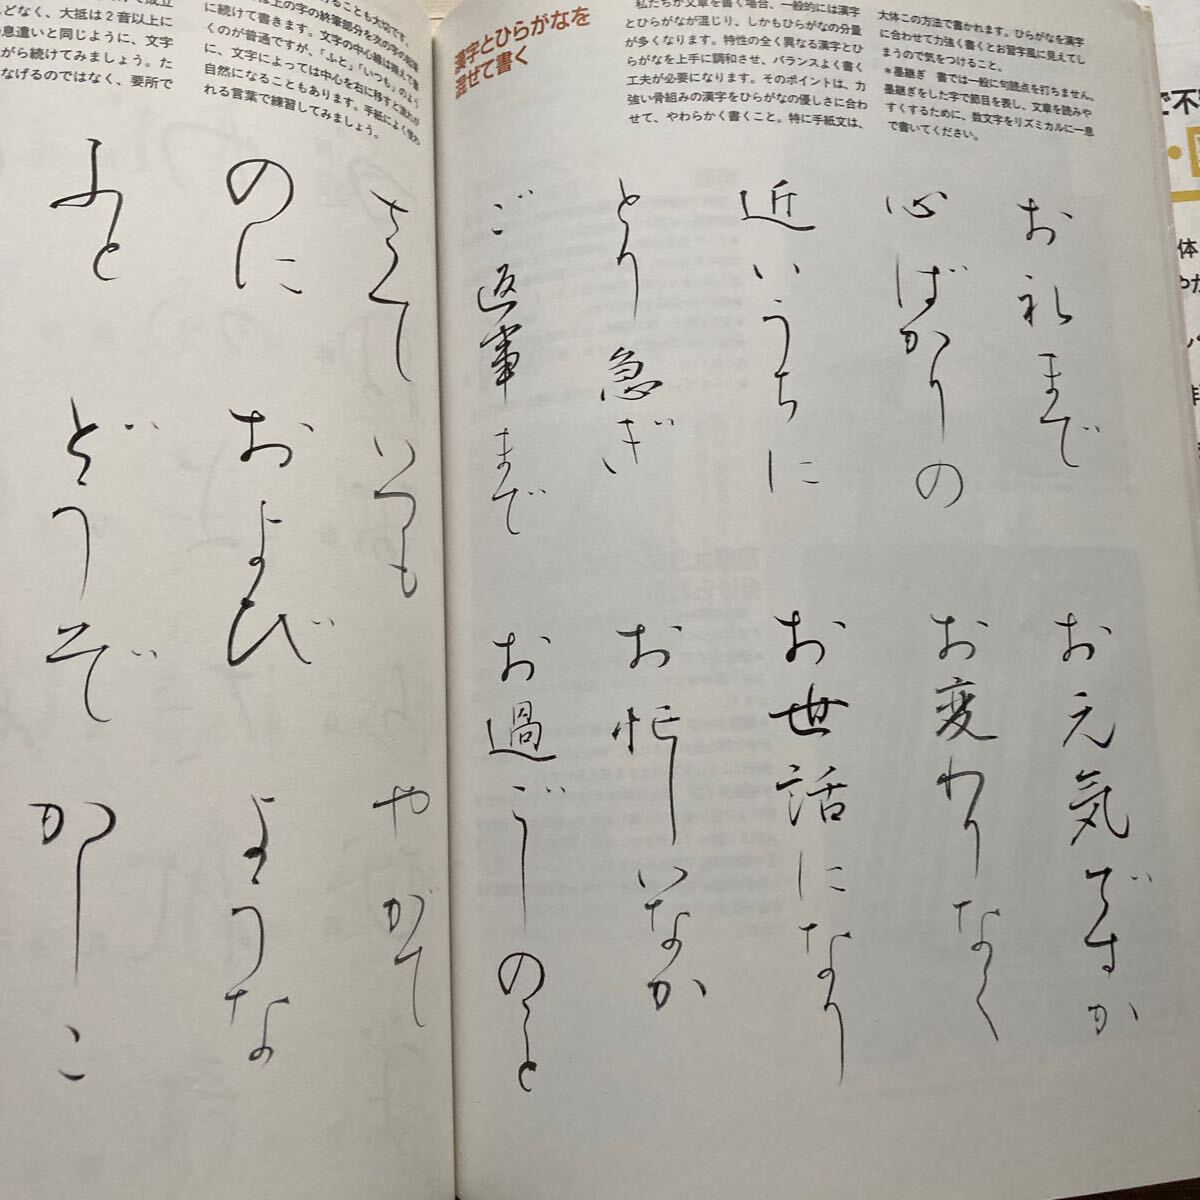 漢字とひらがなを
混ぜて書く
私たちが文章を書く場合、一般的には漢字
とひらがなが混じり、しかもひらがなの分量
が多くなります。特性の全く異なる漢字とひ
らがなを上手に調和させ、バランスよく書く
工夫が必要になります。そのポイントは、力
強い骨組みの漢字をひらがなの優しさに合わ
せて、やわらかく書くこと。特に手紙文は、
大体この方法で書かれます。ひらがなを漢字
に合わせて力強く書くとお習字風に見えてし
まうので気をつけること。
*墨継ぎ 書では一般に句読点を打ちません。
墨継ぎをした字で節目を表し、文章を読みや
すくするために、数文字をリズミカルに一息
で書いてください。
お礼まで
心ばかりの
近いうちに
とり急ぎ
ご返事まで
お元気ですか
お変わりなく
お世話になり
お忙しいなか
お過ごしのこと
ることも大切です。
は上の字の終筆部分を次の字の起筆
に続けて書きます。文字の中心線は揃えて書
くのが普通ですが、「ふと」「いつも」のよう
に、文字によっては中心を右に移すと流れが
自然になることもあります。手紙によく使わ
れる言葉で練習してみましょう。
どなく、大抵は2音以上に
息遣いと同じように、文字
がら続けてみましょう。た
なげるのではなく、要所で
さて
いつも
やがて
のに
および
ような
ふと
どうぞ
かしこ